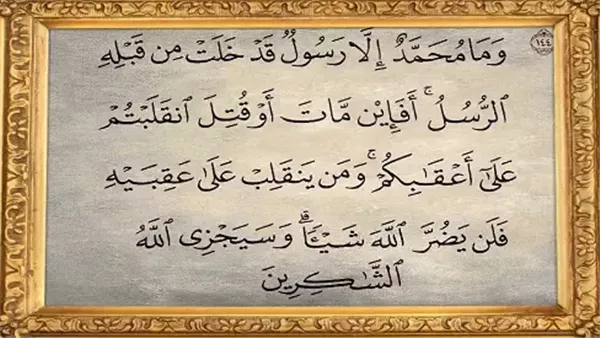 وَمَا مُحَمَّدٌ إِلَّا رَسُولٌ قَدْ خَلَتْ مِن قَبْلِهِ ١٤٤
ٱلرُّسُلُ ۚ أَفَإِيْن مَّاتَ أَوْ قُتِلَ ٱنقَلَبْتُمْ
عَلَىٰٓ أَعْقَـٰبِكُمْ ۚ وَمَن يَنقَلِبْ عَلَىٰ عَقِبَيْهِ
فَلَن يَضُرَّ ٱللَّهَ شَيْـًٔا ۗ وَسَيَجْزِى ٱللَّهُ
ٱلشَّـٰكِرِينَ